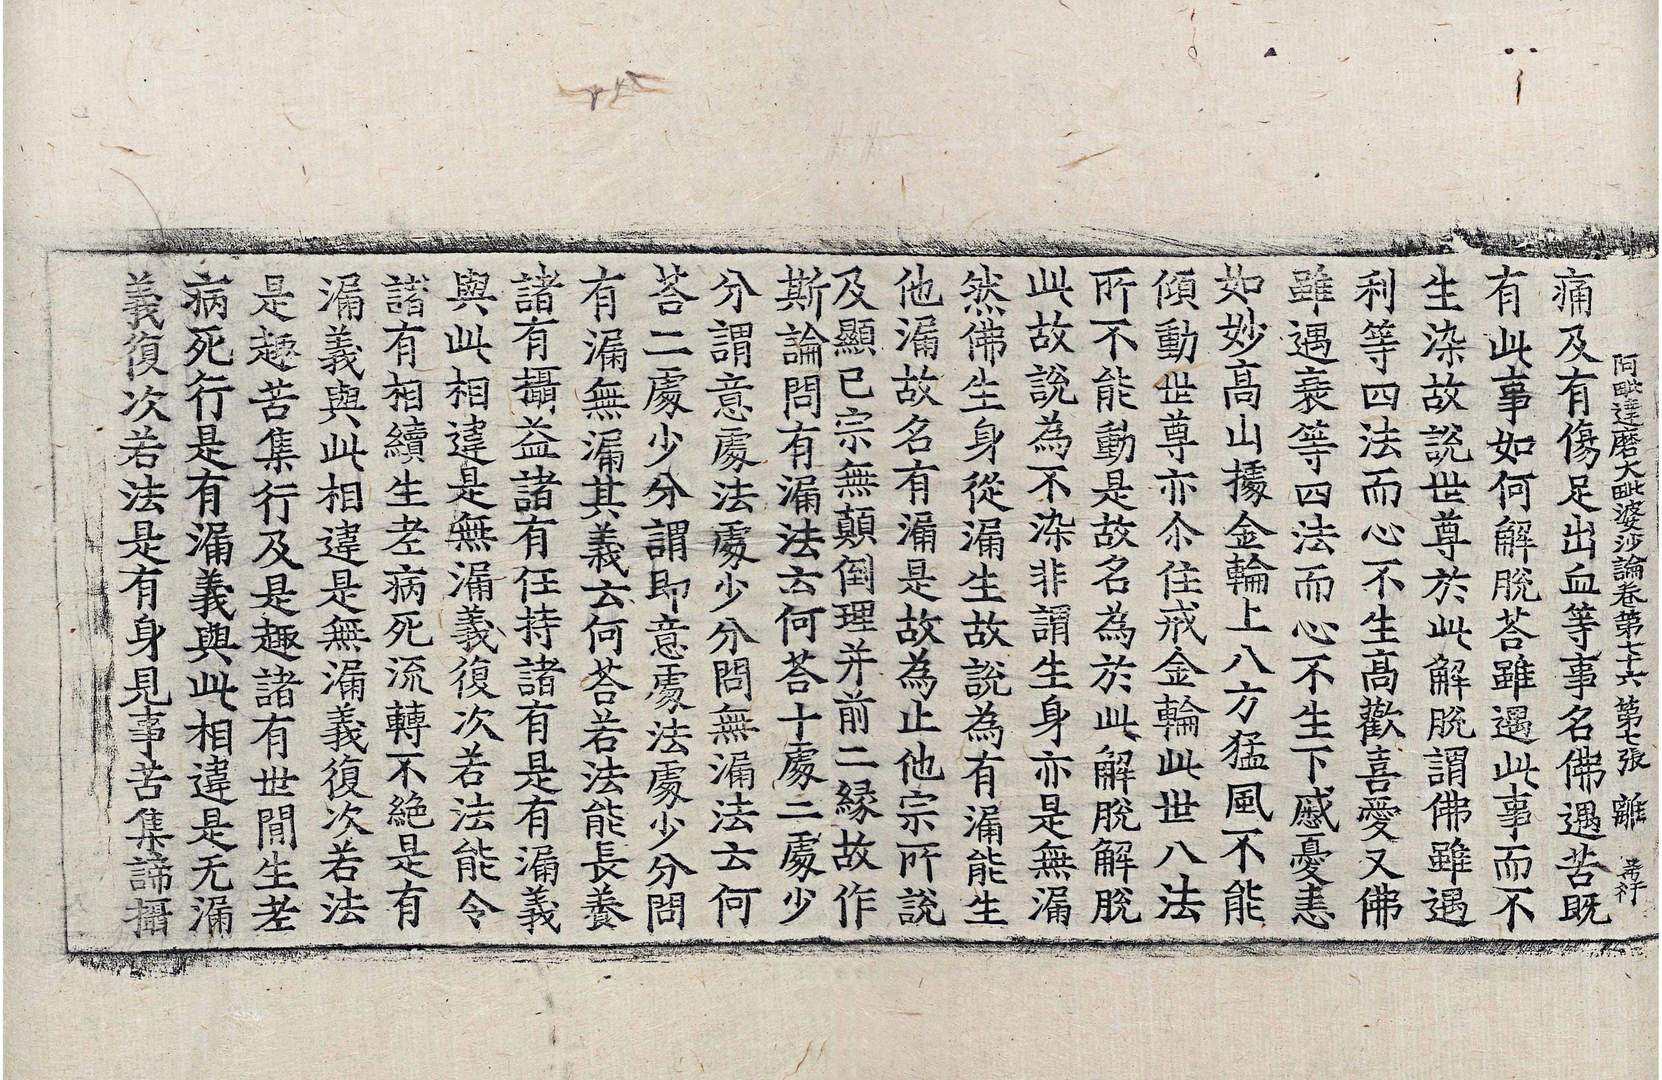 阿毗達磨大毗婆沙論卷第七十六 第七張 雖
痛及有傷足出血等事名佛遇苦既
有此事如何解脫荅雖遇此事而不
生染故說世尊於此解脫謂佛雖遇
利等四法而心不生高歡喜愛又佛
雖遇衰等四法而心不生下慼憂恚
如妙高山據金輪上八方猛風不能
傾動世尊亦尒住戒金輪此世八法
所不能動是故名為於此解脫解脫
此故說為不染非謂生身亦是無漏
然佛生身從漏生故說為有漏能生
他漏故名有漏是故為止他宗所說
及顯已宗無顛倒理并前二緣故作
斯論問有漏法云何荅十處二處少
分謂意處法處少分問無漏法云何
荅二處少分謂即意處法處少分問
有漏無漏其義云何荅若法能長養
諸有攝益諸有任持諸有是有漏義
與此相違是無漏義復次若法能令
諸有相續生老病死流轉不絕是有
漏義與此相違是無漏義復次若法
是趣苦集行及是趣諸有世間生老
病死行是有漏義與此相違是无漏
義復次若法是有身見事苦集諦攝